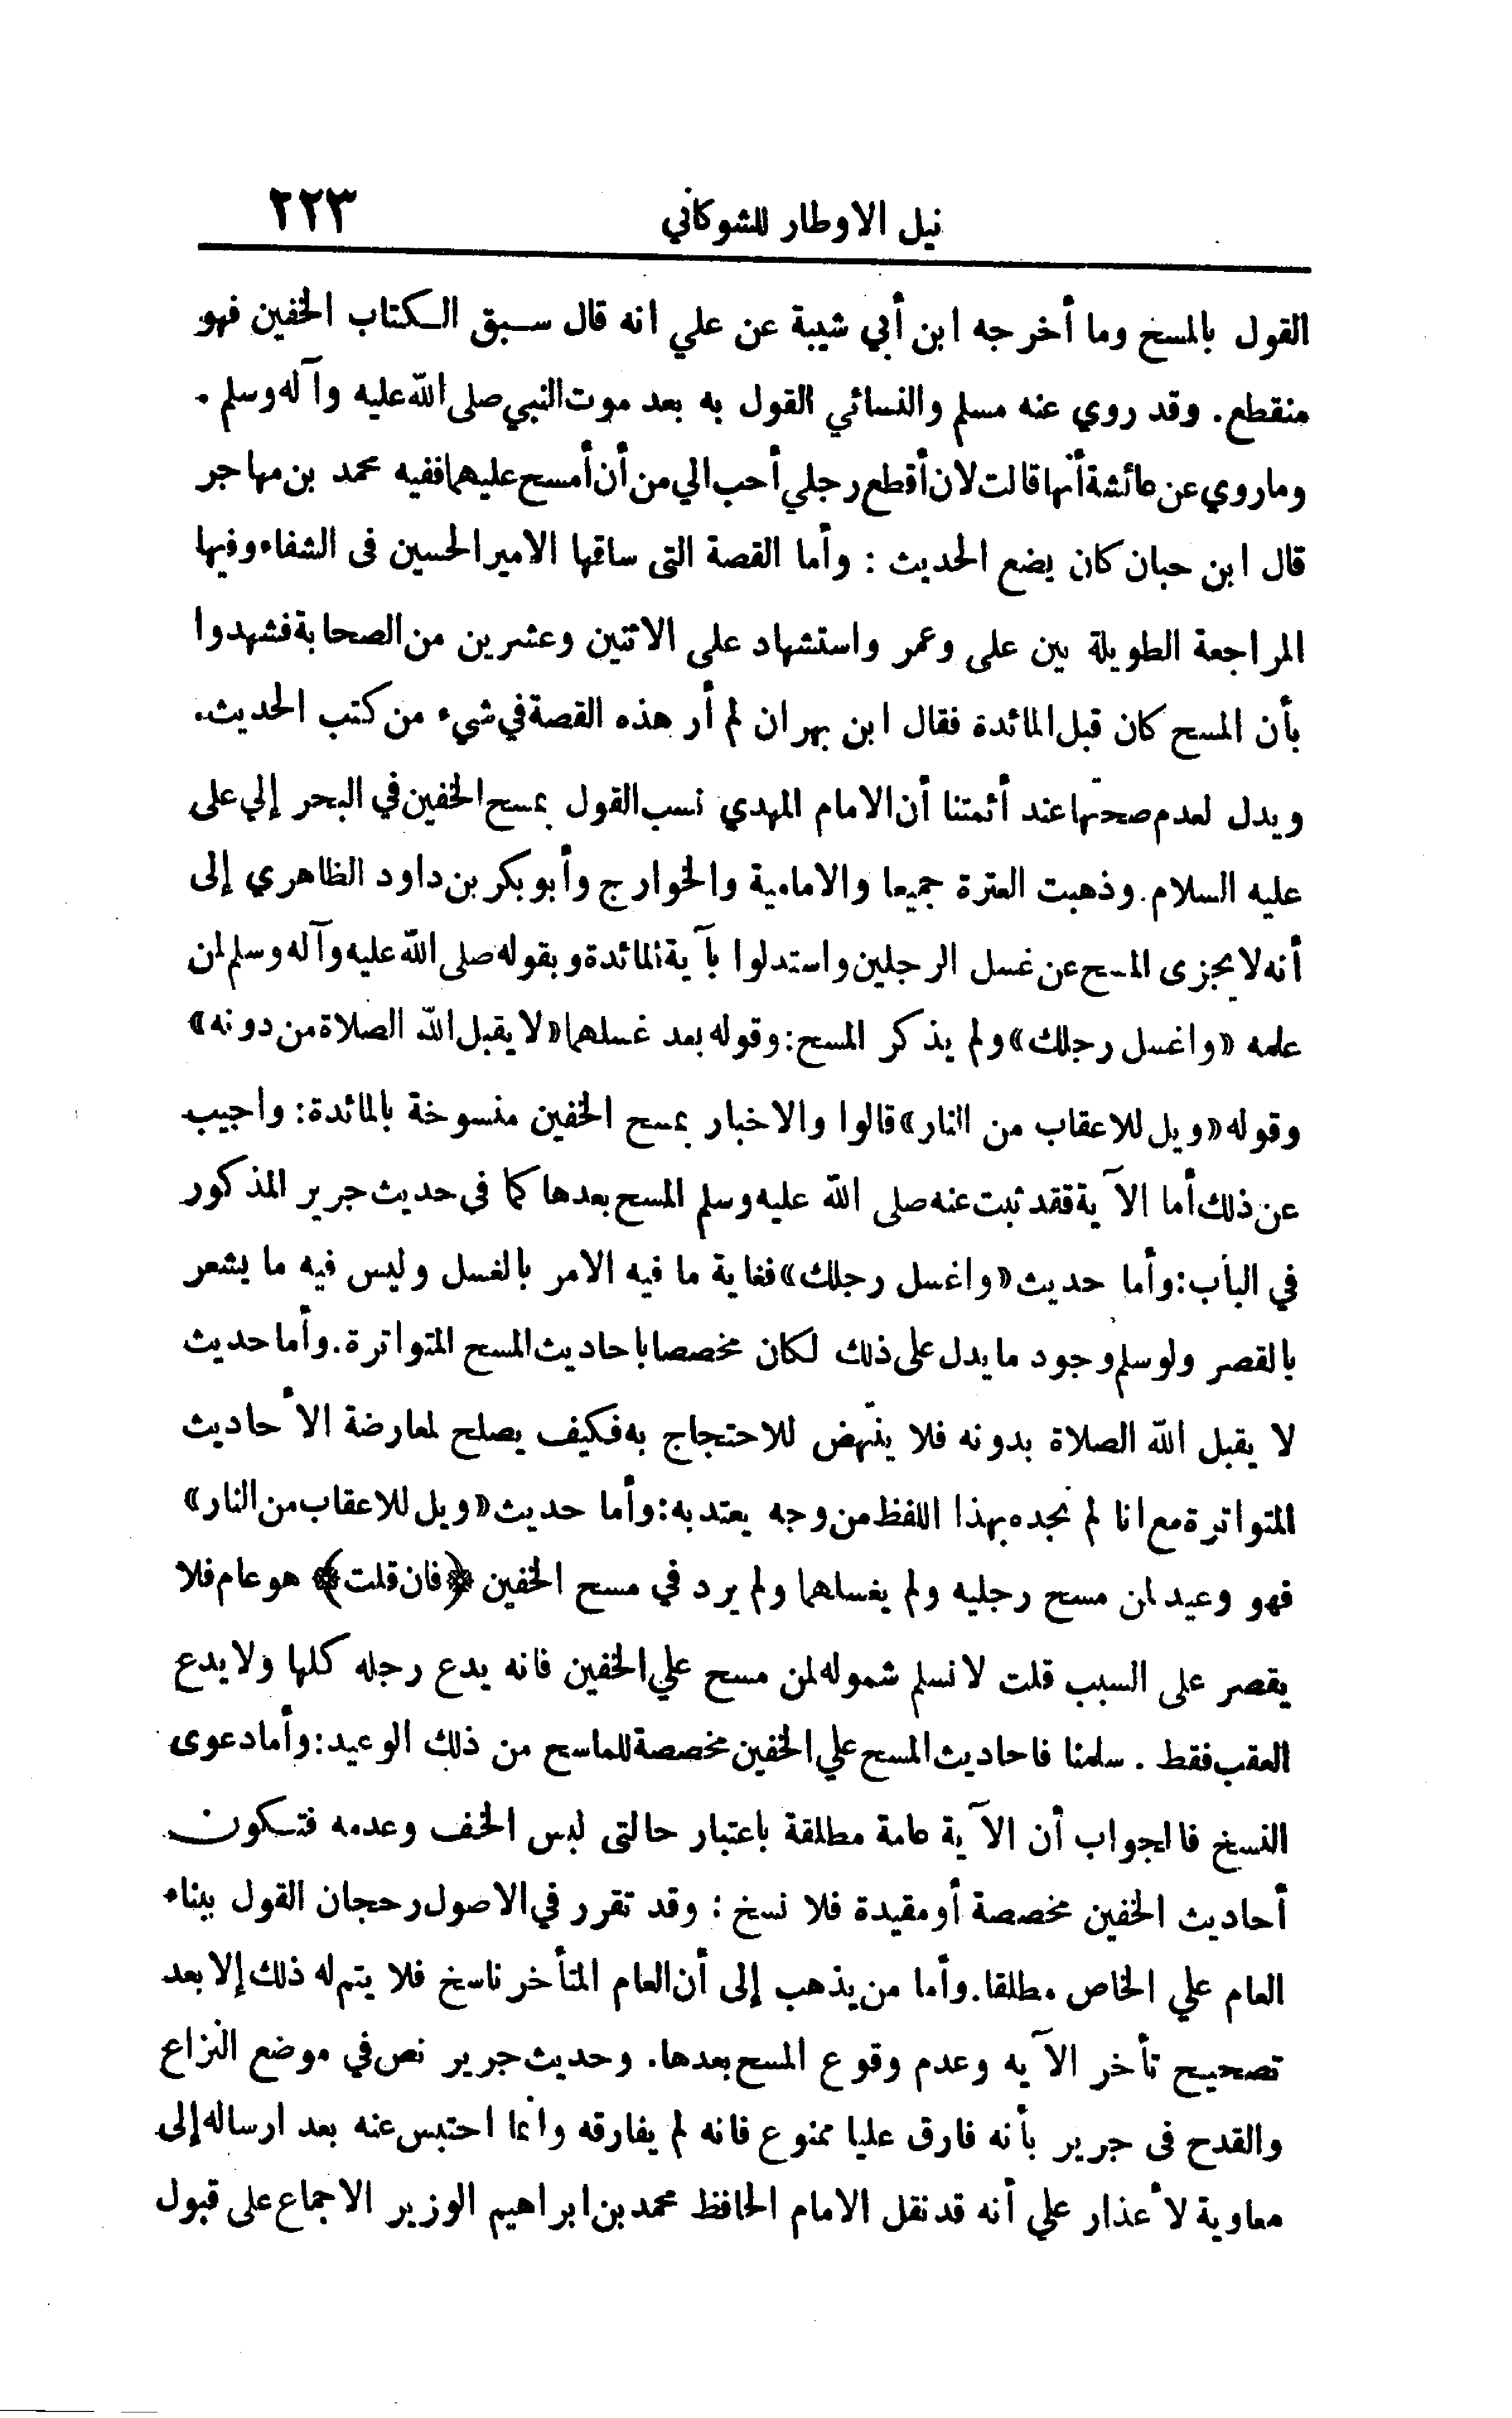 نيل الاوطار للشوكاني ٢٢٣
القول بالمسح وما أخرجه ابن أبي شيبة عن علي انه قال سبق الكتاب الخفين فهو
منقطع. وقد روي عنه مسلم والنسائي القول به بعد موت النبي صلى الله عليه وآله وسلم .
وما روي عن عائشة أنها قالت لان أقطع رجلي أحب الي من أن أمسح عليهما ففيه محمد بن مهاجر
قال ابن حبان كان يضع الحديث : وأما القصة التى ساقها الامير الحسين فى الشفاء وفيها
المراجعة الطويلة بين على وعمر واستشهاد على الاثنين وعشرين من الصحابة فشهدوا
بأن المسح كان قبل المائدة فقال ابن بهران لم أر هذه القصة في شيء من كتب الحديث.
ويدل لعدم صحتها عند أئمتنا أن الامام المهدي نسب القول بمسح الخفين في البحر إلي على
عليه السلام. وذهبت العترة جميعا والامامية والخوارج وأبو بكر بن داود الظاهري إلى
أنه لا يجزى المسح عن غسل الرجلين واستدلوا بآية المائدة وبقوله صلى الله عليه وآله وسلم لمن
علمه «واغسل رجلك» ولم يذكر المسح: وقوله بعد غسلهما «لا يقبل الله الصلاة من دونه»
وقوله «ويل للاعقاب من النار» قالوا والاخبار بمسح الخفين منسوخة بالمائدة: واجيب
عن ذلك أما الآية فقد ثبت عنه صلى الله عليه وسلم المسح بعدها كما فى حديث جرير المذكور
في الباب: وأما حديث «واغسل رجلك» فغاية ما فيه الامر بالغسل وليس فيه ما يشعر
بالقصر ولو سلم وجود ما يدل على ذلك لكان مخصصا باحاديث المسح المتواترة. وأما حديث
لا يقبل الله الصلاة بدونه فلا ينتهض للاحتجاج به فكيف يصلح لمعارضة الأحاديث
المتواترة مع انا لم نجده بهذا اللفظ من وجه يعتد به: وأما حديث «ويل للاعقاب من النار»
فهو وعيد لمن مسح رجليه ولم يغسلهما ولم يرد في مسح الخفين ﴿فان قلت﴾ هو عام فلا
يقصر على السبب قلت لا نسلم شموله لمن مسح علي الخفين فانه يدع رجله كلها ولا يدع
العقب فقط . سلمنا فاحاديث المسح علي الخفين مخصصة للماسح من ذلك الوعيد: وأما دعوى
النسخ فالجواب أن الآية عامة مطلقة باعتبار حالتى لبس الخف وعدمه فتكون
أحاديث الخفين مخصصة أو مقيدة فلا نسخ : وقد تقرر في الاصول رحجان القول ببناء
العام علي الخاص مطلقا. وأما من يذهب إلى أن العام المتأخر ناسخ فلا يتم له ذلك إلا بعد
تصحيح تأخر الآيه وعدم وقوع المسح بعدها. وحديث جرير نص في موضع النزاع
والقدح فى جرير بأنه فارق عليا ممنوع فانه لم يفارقه وانما احتبس عنه بعد ارساله إلى
معاوية لأعذار علي أنه قد نقل الامام الحافظ محمد بن ابراهيم الوزير الاجماع على قبول